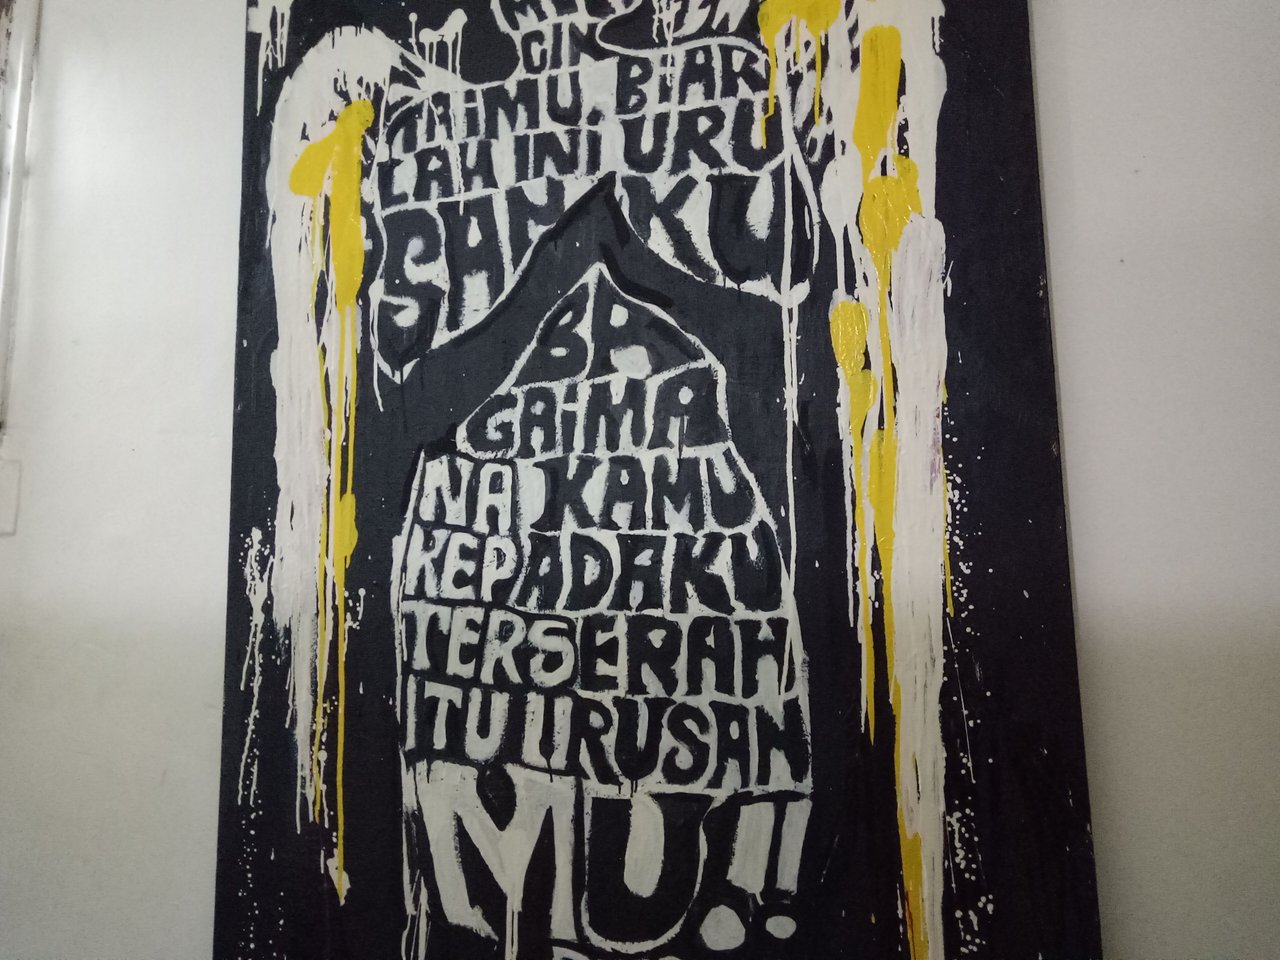 GIN
TAIMU. BIAR
LAH INI URU
SAN KU
BA
GAIMA
NA KAMU
KEPADAKU
TERSERAH
ITU URUSAN
MU!!